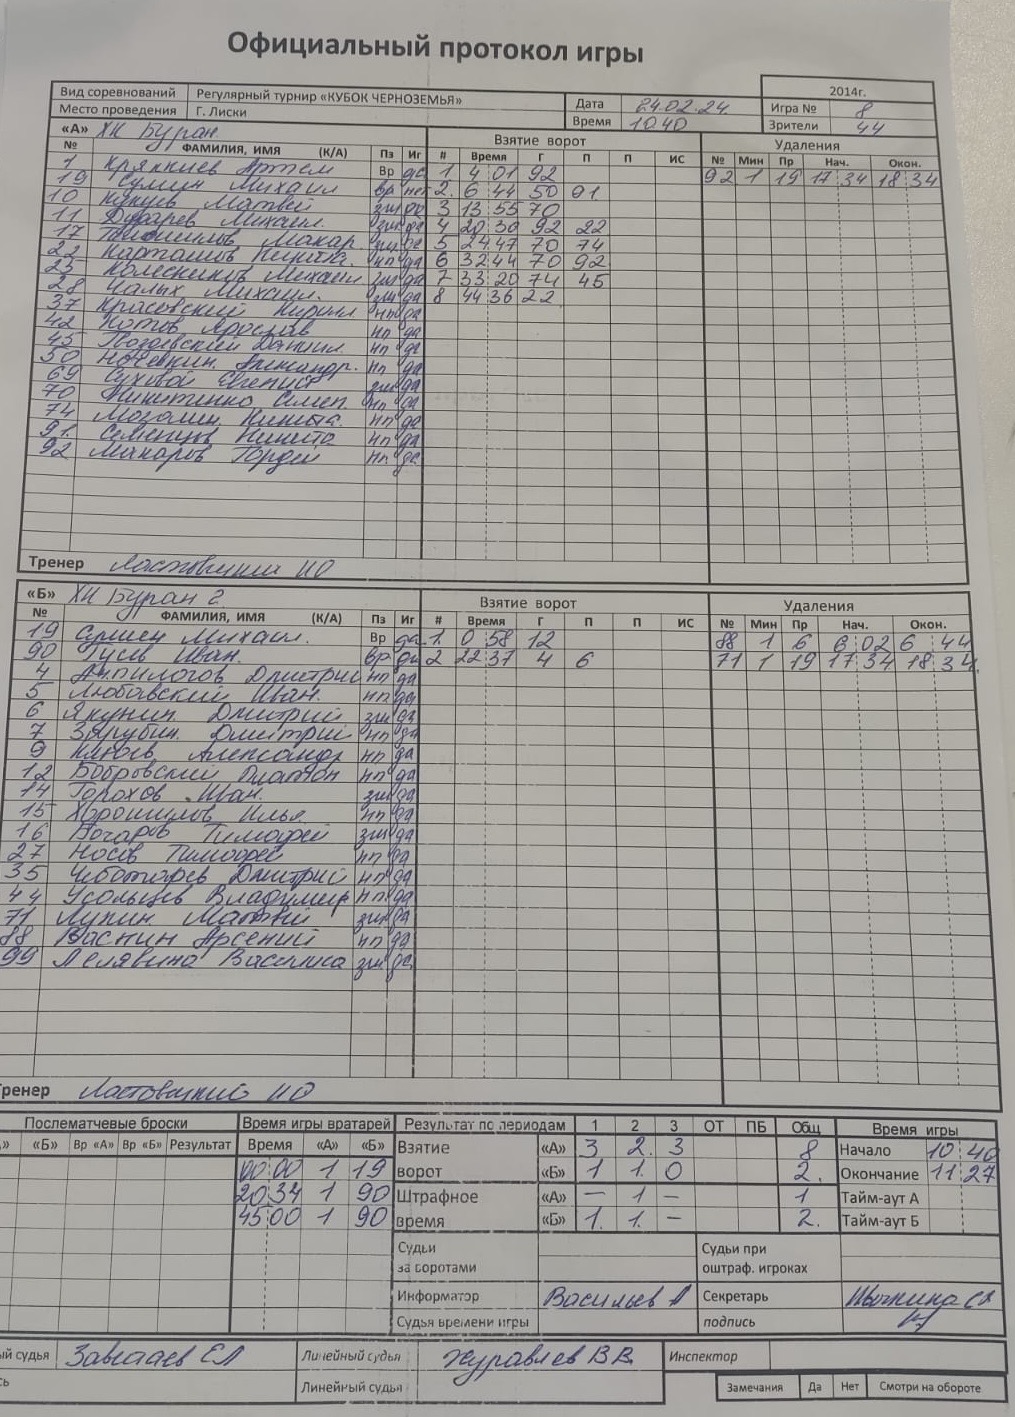 Официальный протокол игры
2014г.
Вид соревнований Регулярный турнир «КУБОК ЧЕРНОЗЕМЬЯ» Дата 24.02.24. Игра № 8
Место проведения Г. Лиски Время 10 40 Зрители 44
«А» ХК Буран Взятие ворот Удаления
№ ФАМИЛИЯ, ИМЯ (К/А) Пз Иг # Время Г П П ИС № Мин Пр Нач. Окон.
1 Артем Вр да 1 4 01 92 92 1 19 17 34 18 34
19 Сумин Михаил вр нет 2. 6 44 50 91
10 Матвей да 3 13 55 70
11 Михаил да 4 20 30 92 22
17 Макар да 5 24 47 70 74
22 Карташов Никита нп да 6 32 44 70 92
23 Колесников Михаил да 7 33 20 74 45
28 Чалых Михаил да 8 44 36 22
37 Красовский Кирилл нп да
42 Котов Ярослав нп да
45 Даниил нп да
50 Александр. нп да
69 Суховой Евгений да
70 Никитенко нп да
74 Никита нп да
91. Семенцов Никита нп да
92 Макаров Гордей нп да
Тренер
«Б» ХК Буран 2 Взятие ворот Удаления
№ ФАМИЛИЯ, ИМЯ (К/А) Пз Иг # Время Г П П ИС № Мин Пр Нач. Окон.
19 Михаил. Вр да 1. 0 58 12 88 1 6 6 02 6 44
90 Гусев Иван. вр да 2 22 37 4 6 71 1 19 17 34 18 34
4 Анпилогов Дмитрий нп да
5 Любавский Иван. нп да
6 Якунин Дмитрий да
7 Зарубин Дмитрий нп да
9 Клюев Александр нп да
12 Бобровский Платон нп да
14 Горохов Иван. да
15 Хорошилов Илья нп да
16 Тимофей да
27 Носов Тимофей нп да
35 Чеботарев Дмитрий нп да
44 Усольцев Владимир нп да
71 Лупин Матвей да
88 Васнин Арсений нп да
99 Лелявина Василиса да
Тренер
Послематчевые броски Время игры вратарей Результат по периодам 1 2 3 ОТ ПБ Общ Время игры
«Б» Вр «А» Вр «Б» Результат Время «А» «Б» Взятие «А» 3 2. 3 8 Начало 10 40
00 00 1 19 ворот «Б» 1 1. 0 2. Окончание 11 27
20 34 1 90 Штрафное «А» — 1 — 1 Тайм-аут А
45 00 1 90 время «Б» 1. 1. — 2. Тайм-аут Б
Судьи за воротами Судьи при оштраф. игроках
Информатор Васильев А Секретарь
Судья времени игры подпись
судья Линейный судья Журавлев В В. Инспектор
Линейный судья Замечания Да Нет Смотри на обороте